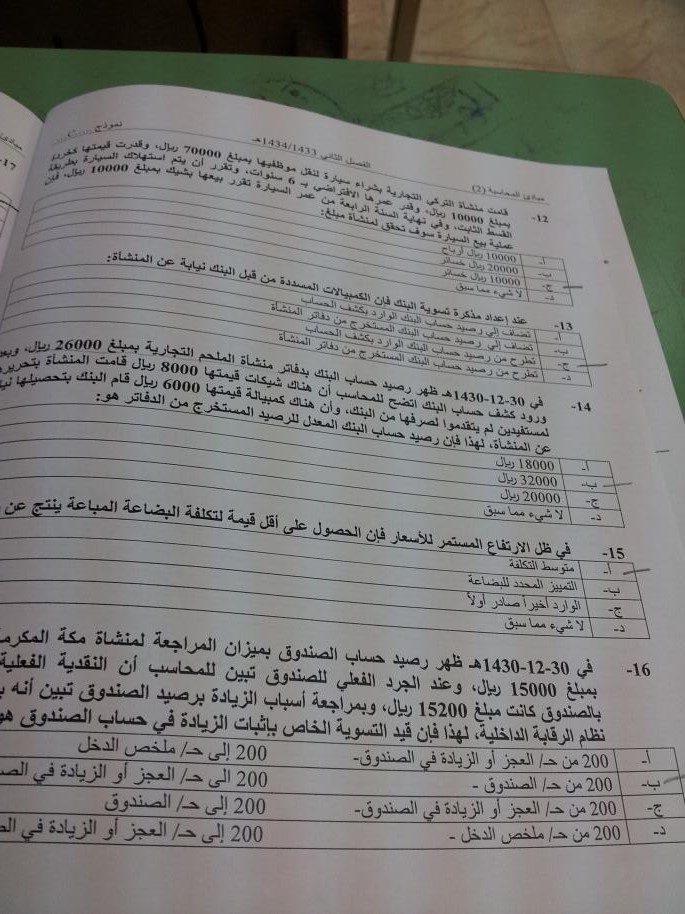 مبادئ المحاسبة (2) الفصل الثاني 1434/1433هـ نموذج ....C....
12- قامت منشأة التركي التجارية بشراء سيارة لنقل موظفيها بمبلغ 70000 ريال، وقدرت قيمتها كخردة
بمبلغ 10000 ريال، وقدر عمرها الافتراضي بـ 6 سنوات، وتقرر أن يتم استهلاك السيارة بطريقة
القسط الثابت، وفي نهاية السنة الرابعة من عمر السيارة تقرر بيعها بشيك بمبلغ 10000 ريال، فإن
عملية بيع السيارة سوف تحقق لمنشأة مبلغ:
أ- 10000 ريال أرباح
ب- 20000 ريال خسائر
ج- 10000 ريال خسائر
د- لا شيء مما سبق
13- عند إعداد مذكرة تسوية البنك فإن الكمبيالات المسددة من قبل البنك نيابة عن المنشأة:
أ- تضاف إلي رصيد حساب البنك الوارد بكشف الحساب
ب- تضاف إلي رصيد حساب البنك المستخرج من دفاتر المنشأة
ج- تطرح من رصيد حساب البنك الوارد بكشف الحساب
د- تطرح من رصيد حساب البنك المستخرج من دفاتر المنشأة
14- في 30-12-1430هـ ظهر رصيد حساب البنك بدفاتر منشأة الملحم التجارية بمبلغ 26000 ريال، وبعد
ورود كشف حساب البنك اتضح للمحاسب أن هناك شيكات قيمتها 8000 ريال قامت المنشأة بتحريرها
لمستفيدين لم يتقدموا لصرفها من البنك، وأن هناك كمبيالة قيمتها 6000 ريال قام البنك بتحصيلها
عن المنشأة، لهذا فإن رصيد حساب البنك المعدل للرصيد المستخرج من الدفاتر هو:
أ- 18000 ريال
ب- 32000 ريال
ج- 20000 ريال
د- لا شيء مما سبق
15- في ظل الارتفاع المستمر للأسعار فإن الحصول على أقل قيمة لتكلفة البضاعة المباعة ينتج عن
أ- متوسط التكلفة
ب- التمييز المحدد للبضاعة
ج- الوارد أخيراً صادر أولاً
د- لا شيء مما سبق
16- في 30-12-1430هـ ظهر رصيد حساب الصندوق بميزان المراجعة لمنشاة مكة المكرمة
بمبلغ 15000 ريال، وعند الجرد الفعلي للصندوق تبين للمحاسب أن النقدية الفعلية
بالصندوق كانت مبلغ 15200 ريال، وبمراجعة أسباب الزيادة برصيد الصندوق تبين أنه
نظام الرقابة الداخلية، لهذا فإن قيد التسوية الخاص بإثبات الزيادة في حساب الصندوق هو
أ- 200 من حـ/ العجز أو الزيادة في الصندوق- 200 إلى حـ/ ملخص الدخل
ب- 200 من حـ/ الصندوق - 200 الى حـ/ العجز أو الزيادة في
ج- 200 من حـ/ العجز أو الزيادة في الصندوق- 200 إلى حـ/ الصندوق
د- 200 من حـ/ ملخص الدخل - 200 إلى حـ/ العجز أو الزيادة في
17-